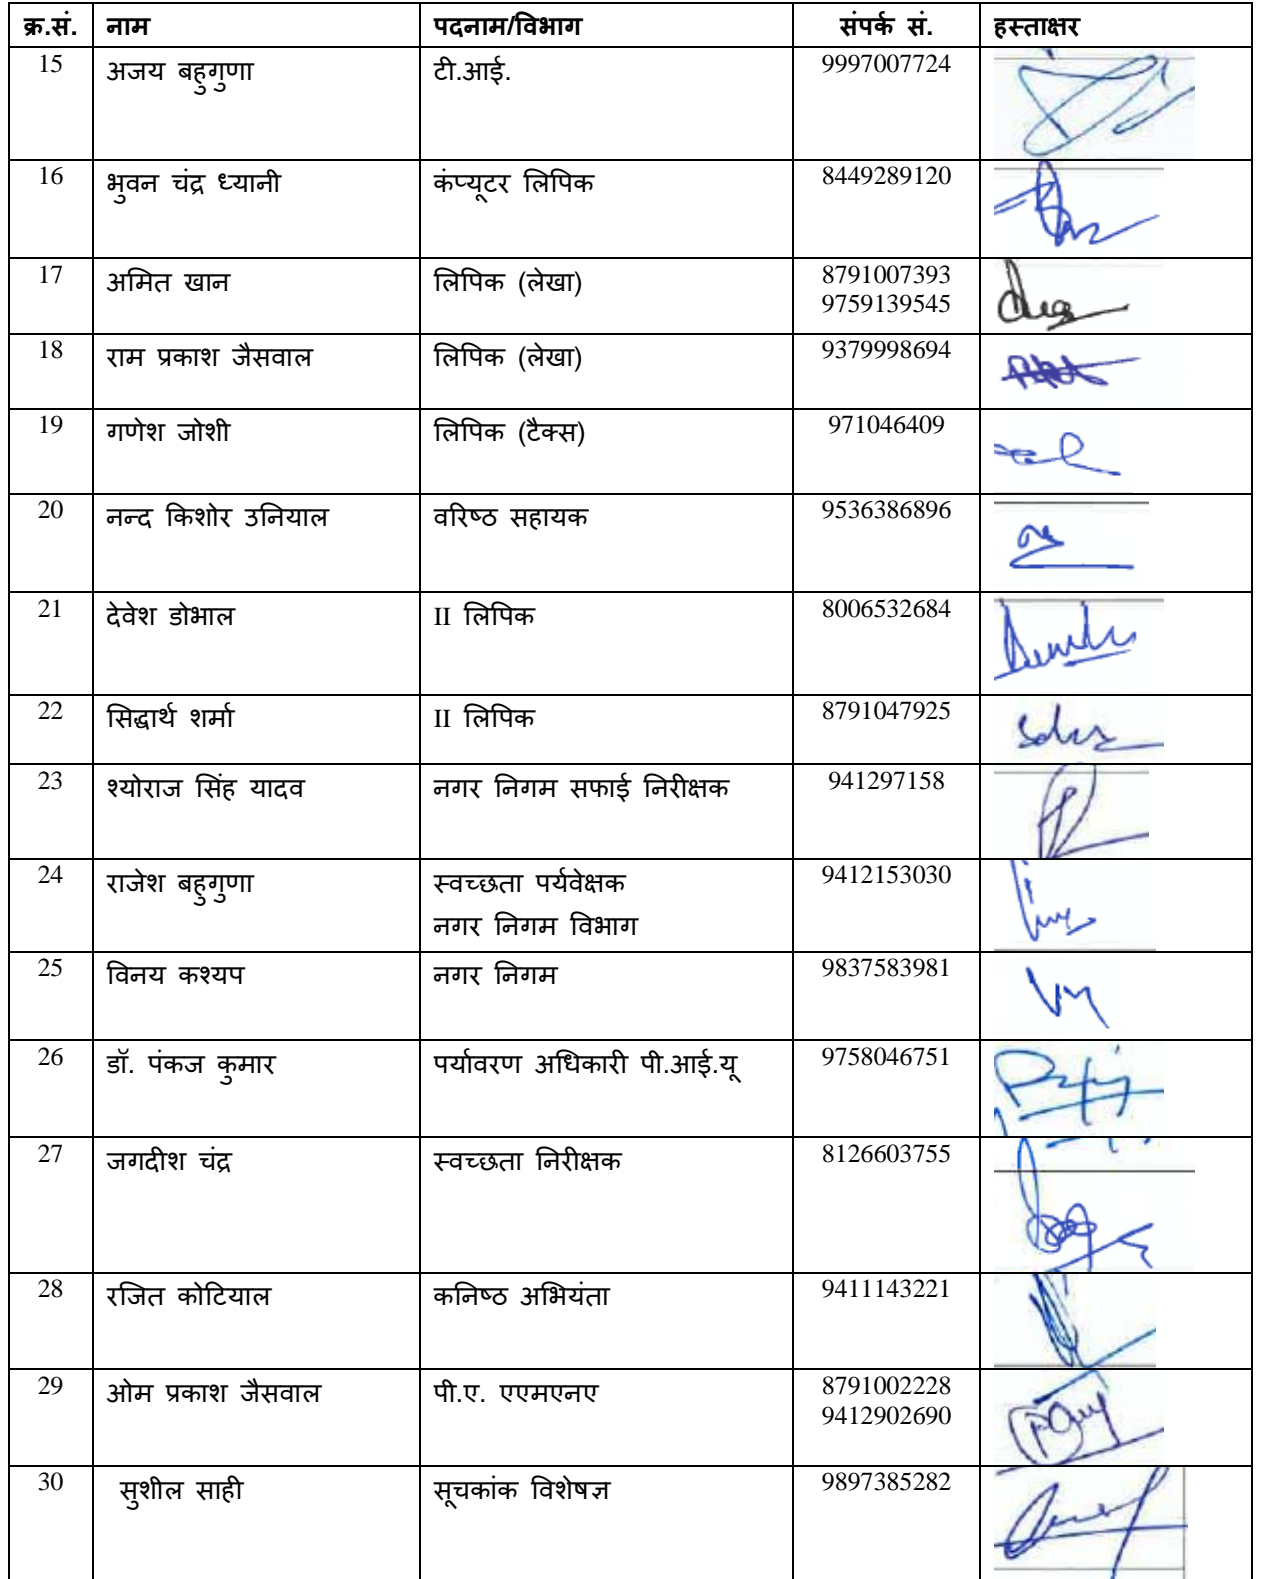 क्र.सं. नाम पदनाम/विभाग संपर्क सं. हस्ताक्षर
15 अजय बहुगुणा टी.आई. 9997007724
16 भुवन चंद्र ध्यानी कंप्यूटर लिपिक 8449289120
17 अमित खान लिपिक (लेखा) 8791007393
9759139545
18 राम प्रकाश जैसवाल लिपिक (लेखा) 9379998694
19 गणेश जोशी लिपिक (टैक्स) 971046409
20 नन्द किशोर उनियाल वरिष्ठ सहायक 9536386896
21 देवेश डोभाल II लिपिक 8006532684
22 सिद्धार्थ शर्मा II लिपिक 8791047925
23 श्योराज सिंह यादव नगर निगम सफाई निरीक्षक 941297158
24 राजेश बहुगुणा स्वच्छता पर्यवेक्षक 9412153030
नगर निगम विभाग
25 विनय कश्यप नगर निगम 9837583981
26 डॉ. पंकज कुमार पर्यावरण अधिकारी पी.आई.यू 9758046751
27 जगदीश चंद्र स्वच्छता निरीक्षक 8126603755
28 रजित कोटियाल कनिष्ठ अभियंता 9411143221
29 ओम प्रकाश जैसवाल पी.ए. एएमएनए 8791002228
9412902690
30 सुशील साही सूचकांक विशेषज्ञ 9897385282